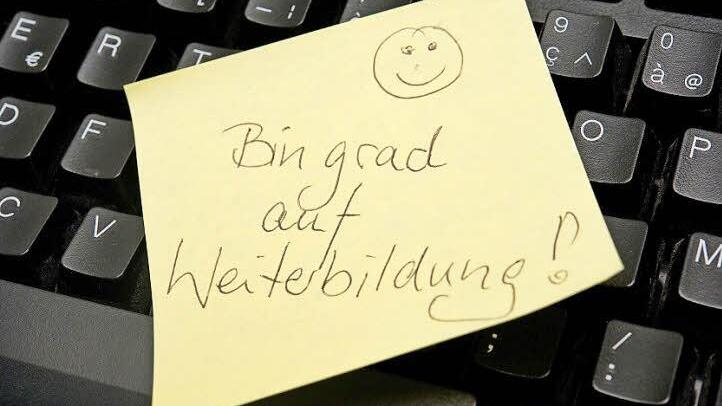 E R T 9 0
€ ç ^ à @
Bin grad
auf
Weiterbildung!
D F O P
C V M
; / :